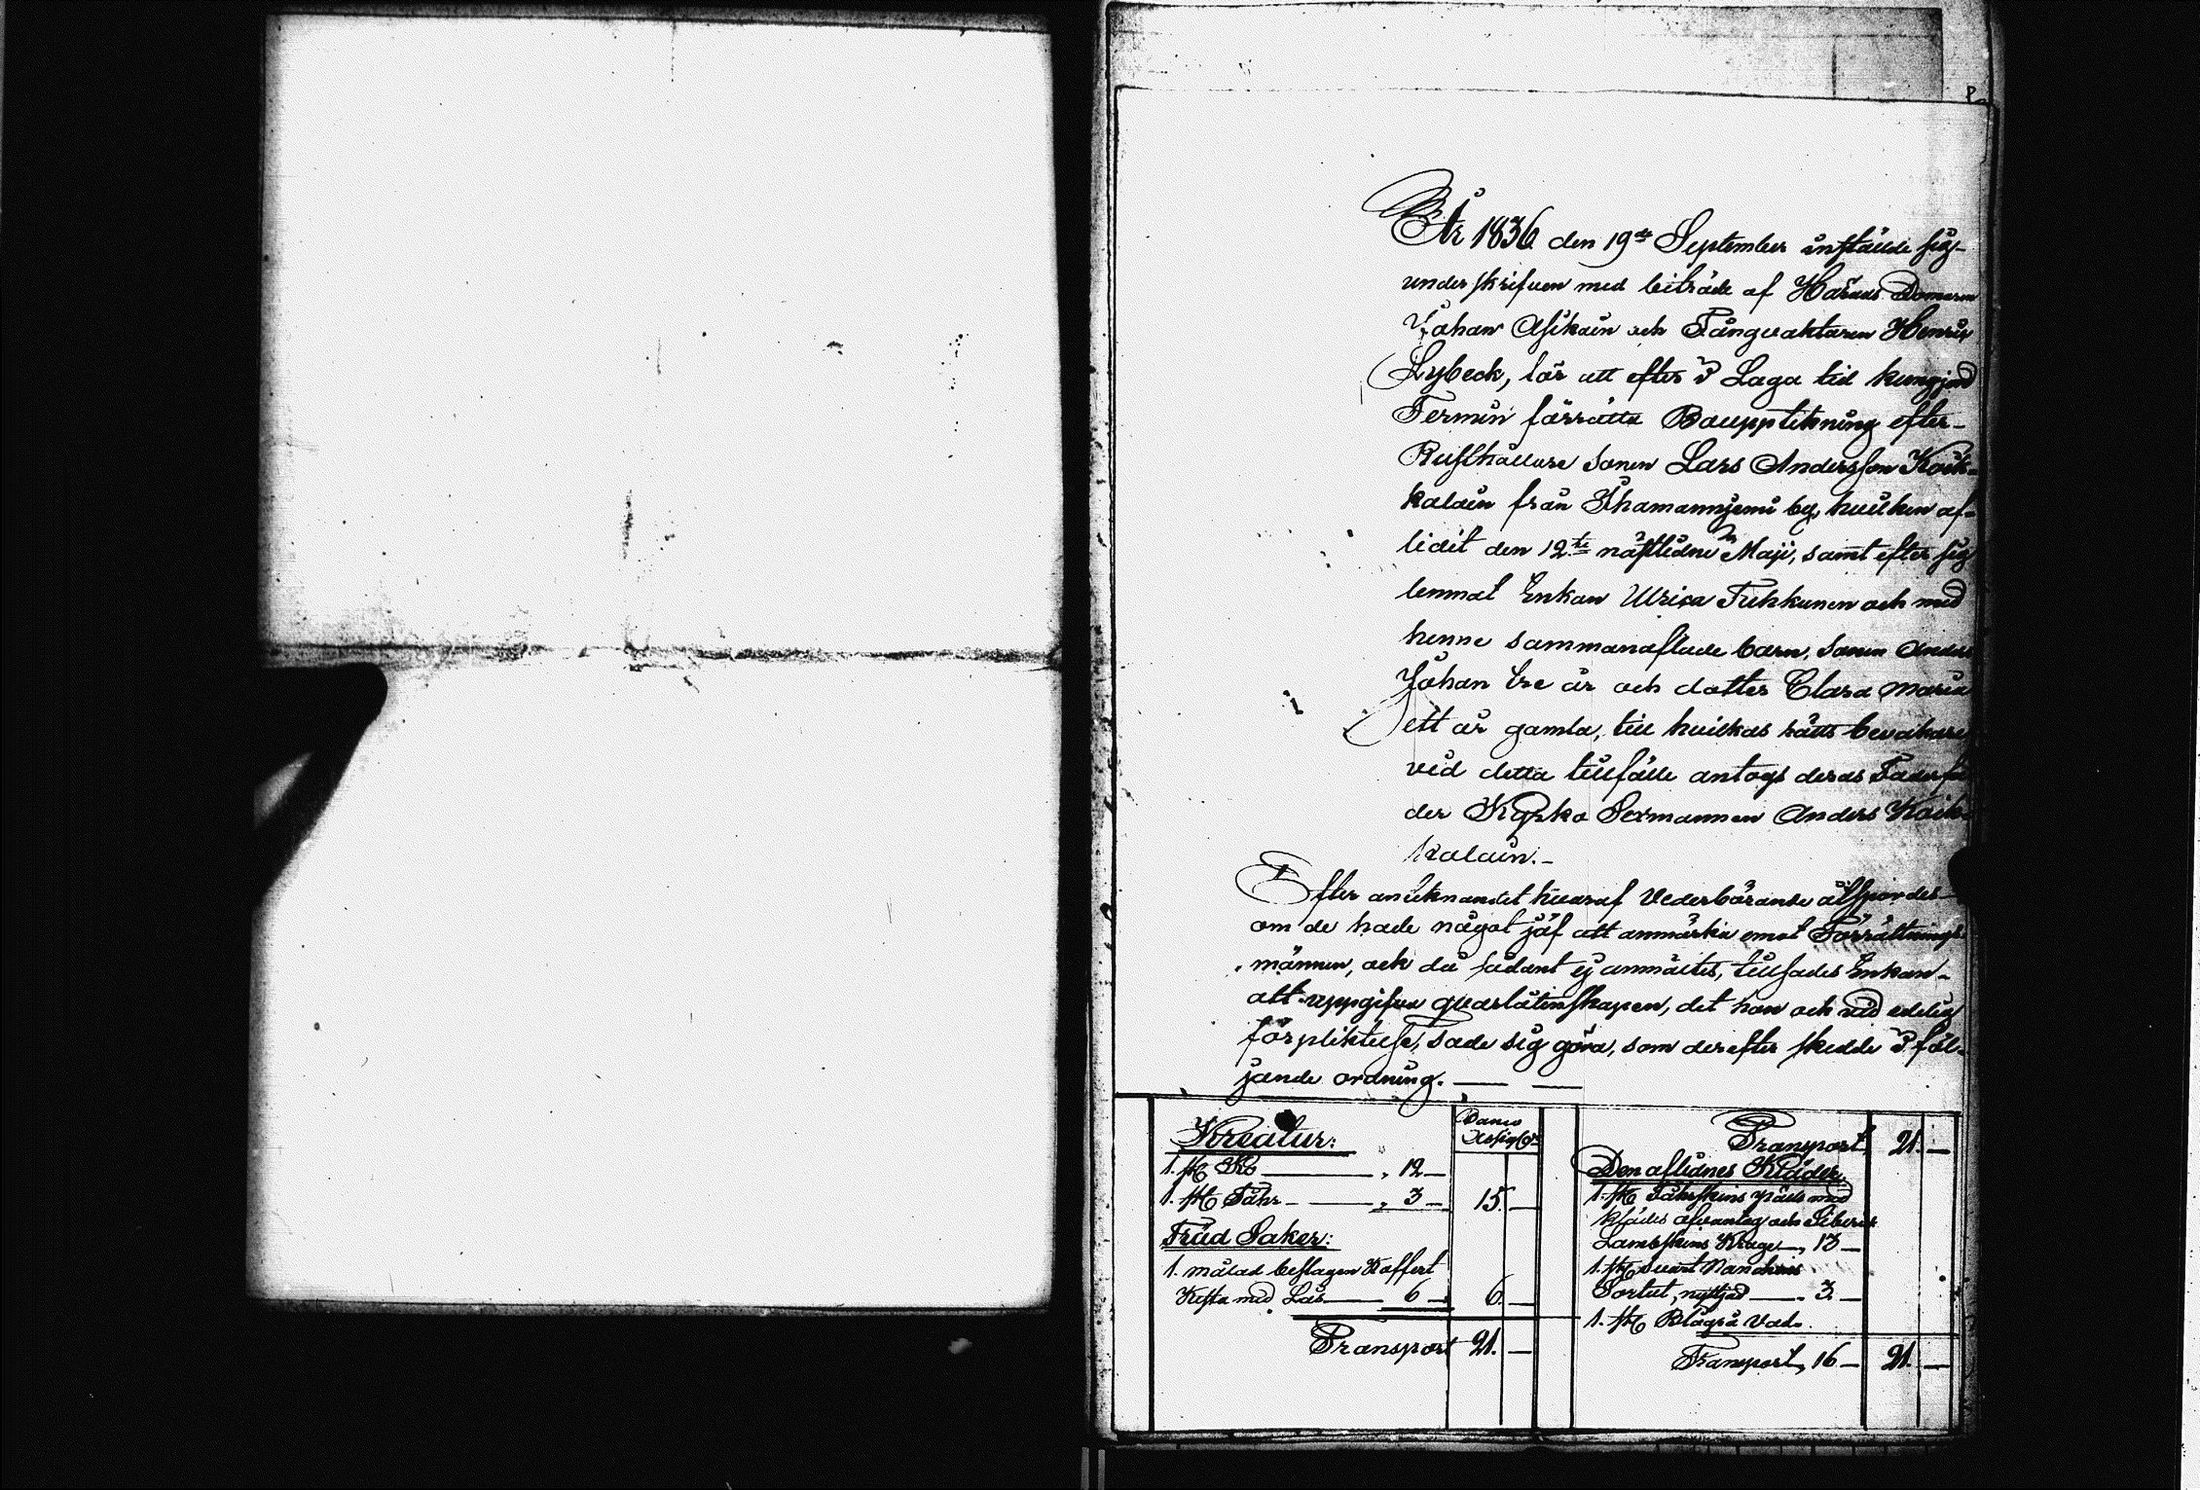 År 1836 den 19de September inställde sig
underskrifven med biträde af Härads Domaren
Johan Asikain och Fångvaktaren Henric
Lybeck, för att efter i Laga tid kungjord
Termin förrätta Bouppteckning efter
Rusthållare Sonen Lars Andersson Koik-
kalain från Ihamanniemi by, hvilken af-
lidit den 12te nästledne Maji, samt efter sig
lemnat Enkan Ulrica Tuhkunen och med
henne sammanaflade barn, Sonen Anders
Johan tre år och dotter Clara Maria
ett år gamla, till hvilkas rätts bevakare
vid detta tillfälle antogs deras Faderfa
der Kyrko Sexmannen Anders Koik-
kalain.-
Efter antecknandet hvaraf Vederbörande åtspordes
om de hade något jäf att anmärka emot Förrättnings
männen, och då sådant ej anmältes, tillsades Enkan
att uppgifva qvarlåtenskapen, det hon och vid edelig
förpliktelse, sade sig göra, som derefter skedde i föl-
jande ordning. — —
Kreatur: Banco Assign.
1. st. Ko — " 12 —
1. st. Fåhr — " 3 — 15. —
Träd Saker:
1. målad beslagen Koffert
Kista med Lås — 6 — 6. —
Transport 21. —
Transport 21. —
Den aflidnes Kläder
1. st. Fårskins päls med
klädes och Siberisk
Lambskins Krage — " 13 —
1. st. svart Nankins
Sortut, nyttjad — " 3. —
1. st. Blågrå Vad.
Transport, 16 — 21. —